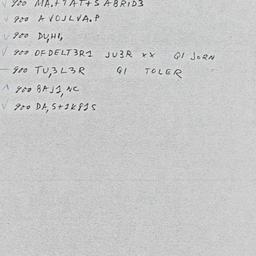 √ 900 MA,+7AT+S ABRID3
√ 900 AVOJLVA,P
√ 900 DU,HI,
√ 900 OFDELT3R1 JU3R xx QI JORN
— 900 TU,3L3R QI TOLER
^ 900 8AJ1,NC
√ 900 DA,S+1K81S